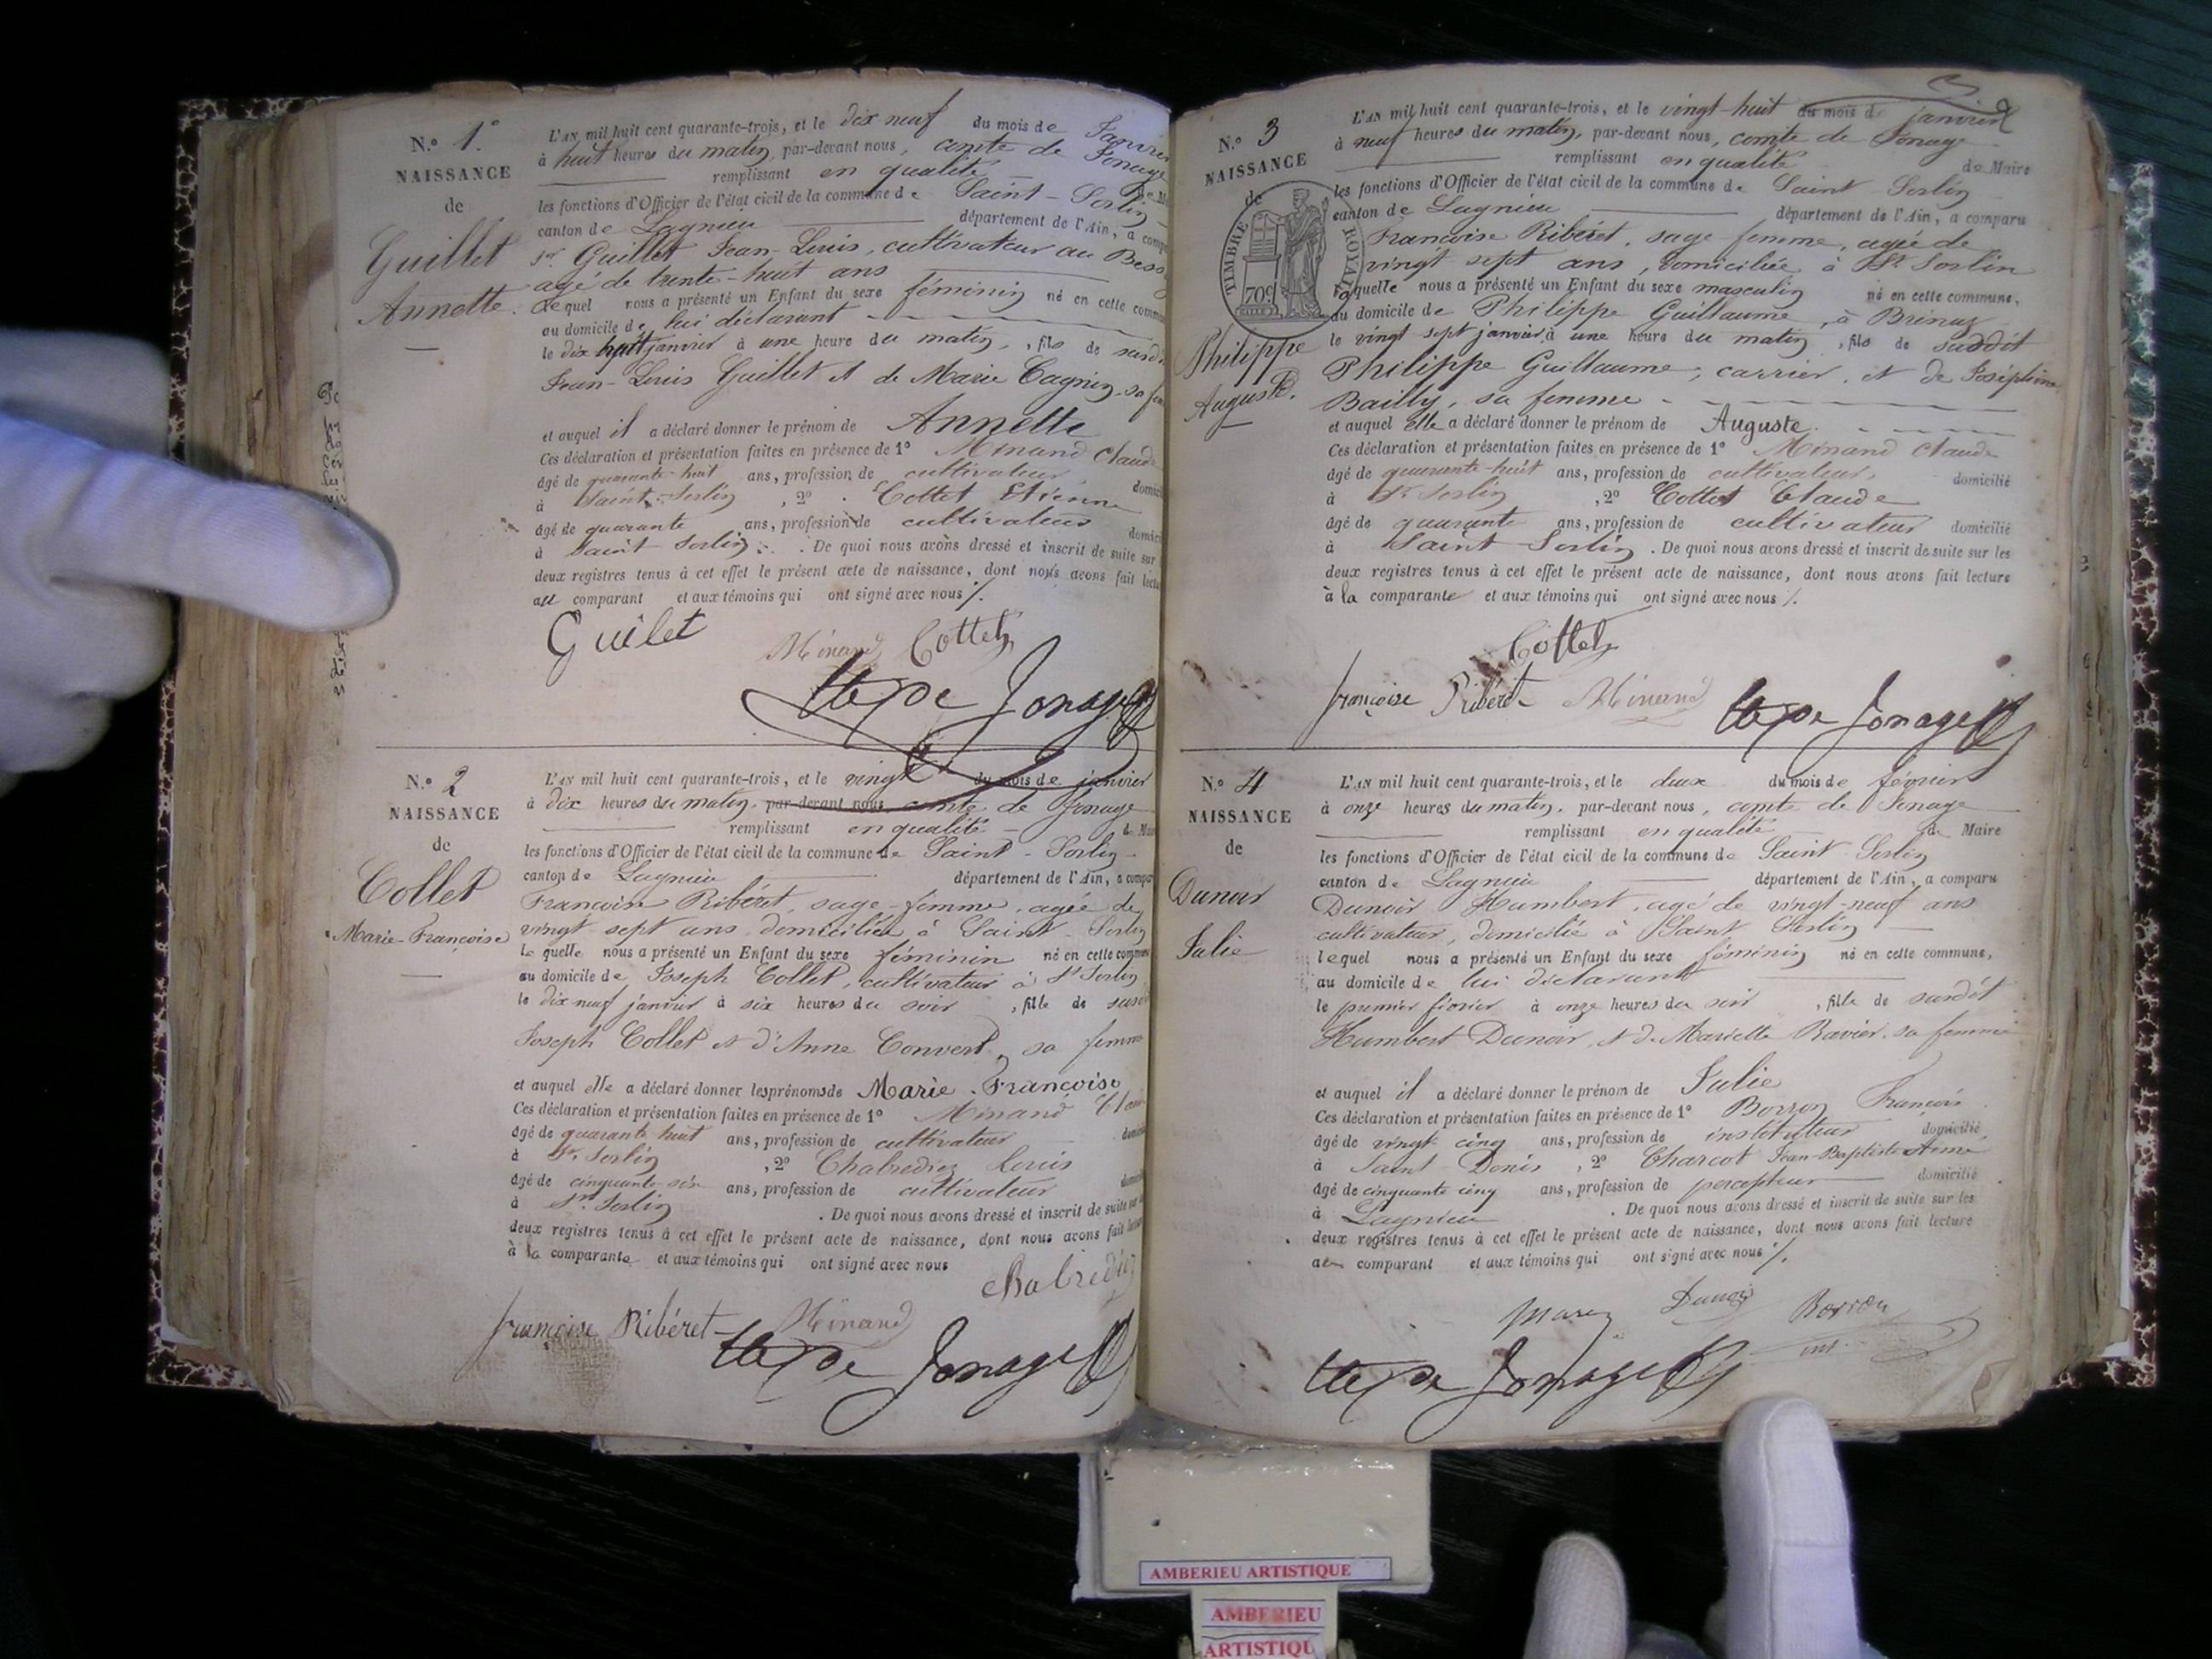 N.o 1.o
NAISSANCE
de
Guillet
Annette.
L'AN mil huit cent quarante-trois, et le dix neuf du mois de Janvier
à huit heures du matin, par-devant nous, comte de Jonage
remplissant en qualité
les fonctions d'Officier de l'état civil de la commune de Saint-Sorlin
canton de Lagnieu département de l'Ain, a comp
Sr Guillet Jean-Louis, cultivateur au Bess
agé de trente-huit ans
Lequel nous a présenté un Enfant du sexe féminin né en cette comm
au domicile de lui déclarant
le dix huit janvier à une heure du matin, fils de susd
Jean-Louis Guillet et de Marie Cagnin, sa fem
et auquel il a déclaré donner le prénom de Annette
Ces déclaration et présentation faites en présence de 1o Minand Claude
âgé de quarante-huit ans, profession de cultivateur domici
à Saint-Sorlin, 2o Cottet Etienne
âgé de quarante ans, profession de cultivateur domici
à Saint Sorlin. De quoi nous avons dressé et inscrit de suite sur
deux registres tenus à cet effet le présent acte de naissance, dont nous avons fait lectu
au comparant et aux témoins qui ont signé avec nous /.
Guilet Minand Cottet
Cte de Jonage
N.o 2
NAISSANCE
de
Collet
Marie-Françoise
L'AN mil huit cent quarante-trois, et le vingt du mois de janvier
à dix heures du matin, par-devant nous comte de Jonage
remplissant en qualité de Mai
les fonctions d'Officier de l'état civil de la commune de Saint-Sorlin
canton de Lagnieu département de l'Ain, a compar
Françoise Ribéret, sage-femme, agée de
vingt-sept ans domiciliée à Saint-Sorlin
la quelle nous a présenté un Enfant du sexe féminin né en cette commun
au domicile de Joseph Collet, cultivateur à St Sorlin
le dix neuf janvier à six heures du soir, fille de susd
Joseph Collet et d'Anne Convert, sa femme
et auquel elle a déclaré donner les prénoms de Marie-Françoise
Ces déclaration et présentation faites en présence de 1o Minand Clau
âgé de quarante huit ans, profession de cultivateur domici
à St. Sorlin, 2o Chabrediez Louis
âgé de cinquante-six ans, profession de cultivateur domici
à St. Sorlin. De quoi nous avons dressé et inscrit de suite sur
deux registres tenus à cet effet le présent acte de naissance, dont nous avons fait lectu
à la comparante et aux témoins qui ont signé avec nous
Chabrediez
françoise Ribéret Minand
Cte de Jonage
N.o 3
NAISSANCE
de
TIMBRE ROYAL
70c
Philippe
Auguste.
L'AN mil huit cent quarante-trois, et le vingt-huit du mois de janvier
à neuf heures du matin, par-devant nous, comte de Jonage
remplissant en qualité de Maire
les fonctions d'Officier de l'état civil de la commune de Saint-Sorlin
canton de Lagnieu département de l'Ain, a comparu
Françoise Ribéret, sage-femme, agée de
vingt sept ans, domiciliée à St Sorlin
laquelle nous a présenté un Enfant du sexe masculin né en cette commune,
au domicile de Philippe Guillaume, à Brénaz
le vingt sept janvier à une heure du matin, fils de susdit
Philippe Guillaume, carrier, et de Joséphine
Bailly, sa femme
et auquel Elle a déclaré donner le prénom de Auguste.
Ces déclaration et présentation faites en présence de 1o Minand Claude
âgé de quarante-huit ans, profession de cultivateur, domicilié
à St Sorlin, 2o Cottet Claude
âgé de quarante ans, profession de cultivateur domicilié
à Saint-Sorlin. De quoi nous avons dressé et inscrit de suite sur les
deux registres tenus à cet effet le présent acte de naissance, dont nous avons fait lecture
à la comparante et aux témoins qui ont signé avec nous /.
Cottet
françoise Ribéret Minand Cte de Jonage
N.o 4
NAISSANCE
de
Dunoir
Julie
L'AN mil huit cent quarante-trois, et le deux du mois de février
à onze heures du matin, par-devant nous, comte de Jonage
remplissant en qualité de Maire
les fonctions d'Officier de l'état civil de la commune de Saint Sorlin
canton de Lagnieu département de l'Ain, a comparu
Dunoir Humbert, agé de vingt-neuf ans
cultivateur, domicilié à Saint Sorlin
lequel nous a présenté un Enfant du sexe féminin né en cette commune,
au domicile de lui déclarant
le premier février à onze heures du soir, fille de susdit
Humbert Dunoir, et de Mariette Ravier, sa femme
et auquel il a déclaré donner le prénom de Julie
Ces déclaration et présentation faites en présence de 1o Borron François
âgé de vingt cinq ans, profession de instituteur domicilié
à Saint-Denis, 2o Charcot Jean-Baptiste Aimé
âgé de cinquante cinq ans, profession de percepteur domicilié
à Lagnieu. De quoi nous avons dressé et inscrit de suite sur les
deux registres tenus à cet effet le présent acte de naissance, dont nous avons fait lecture
au comparant et aux témoins qui ont signé avec nous /.
Dunoir Borron
Cte de Jonage
AMBERIEU ARTISTIQUE
AMBERIEU
ARTISTIQU